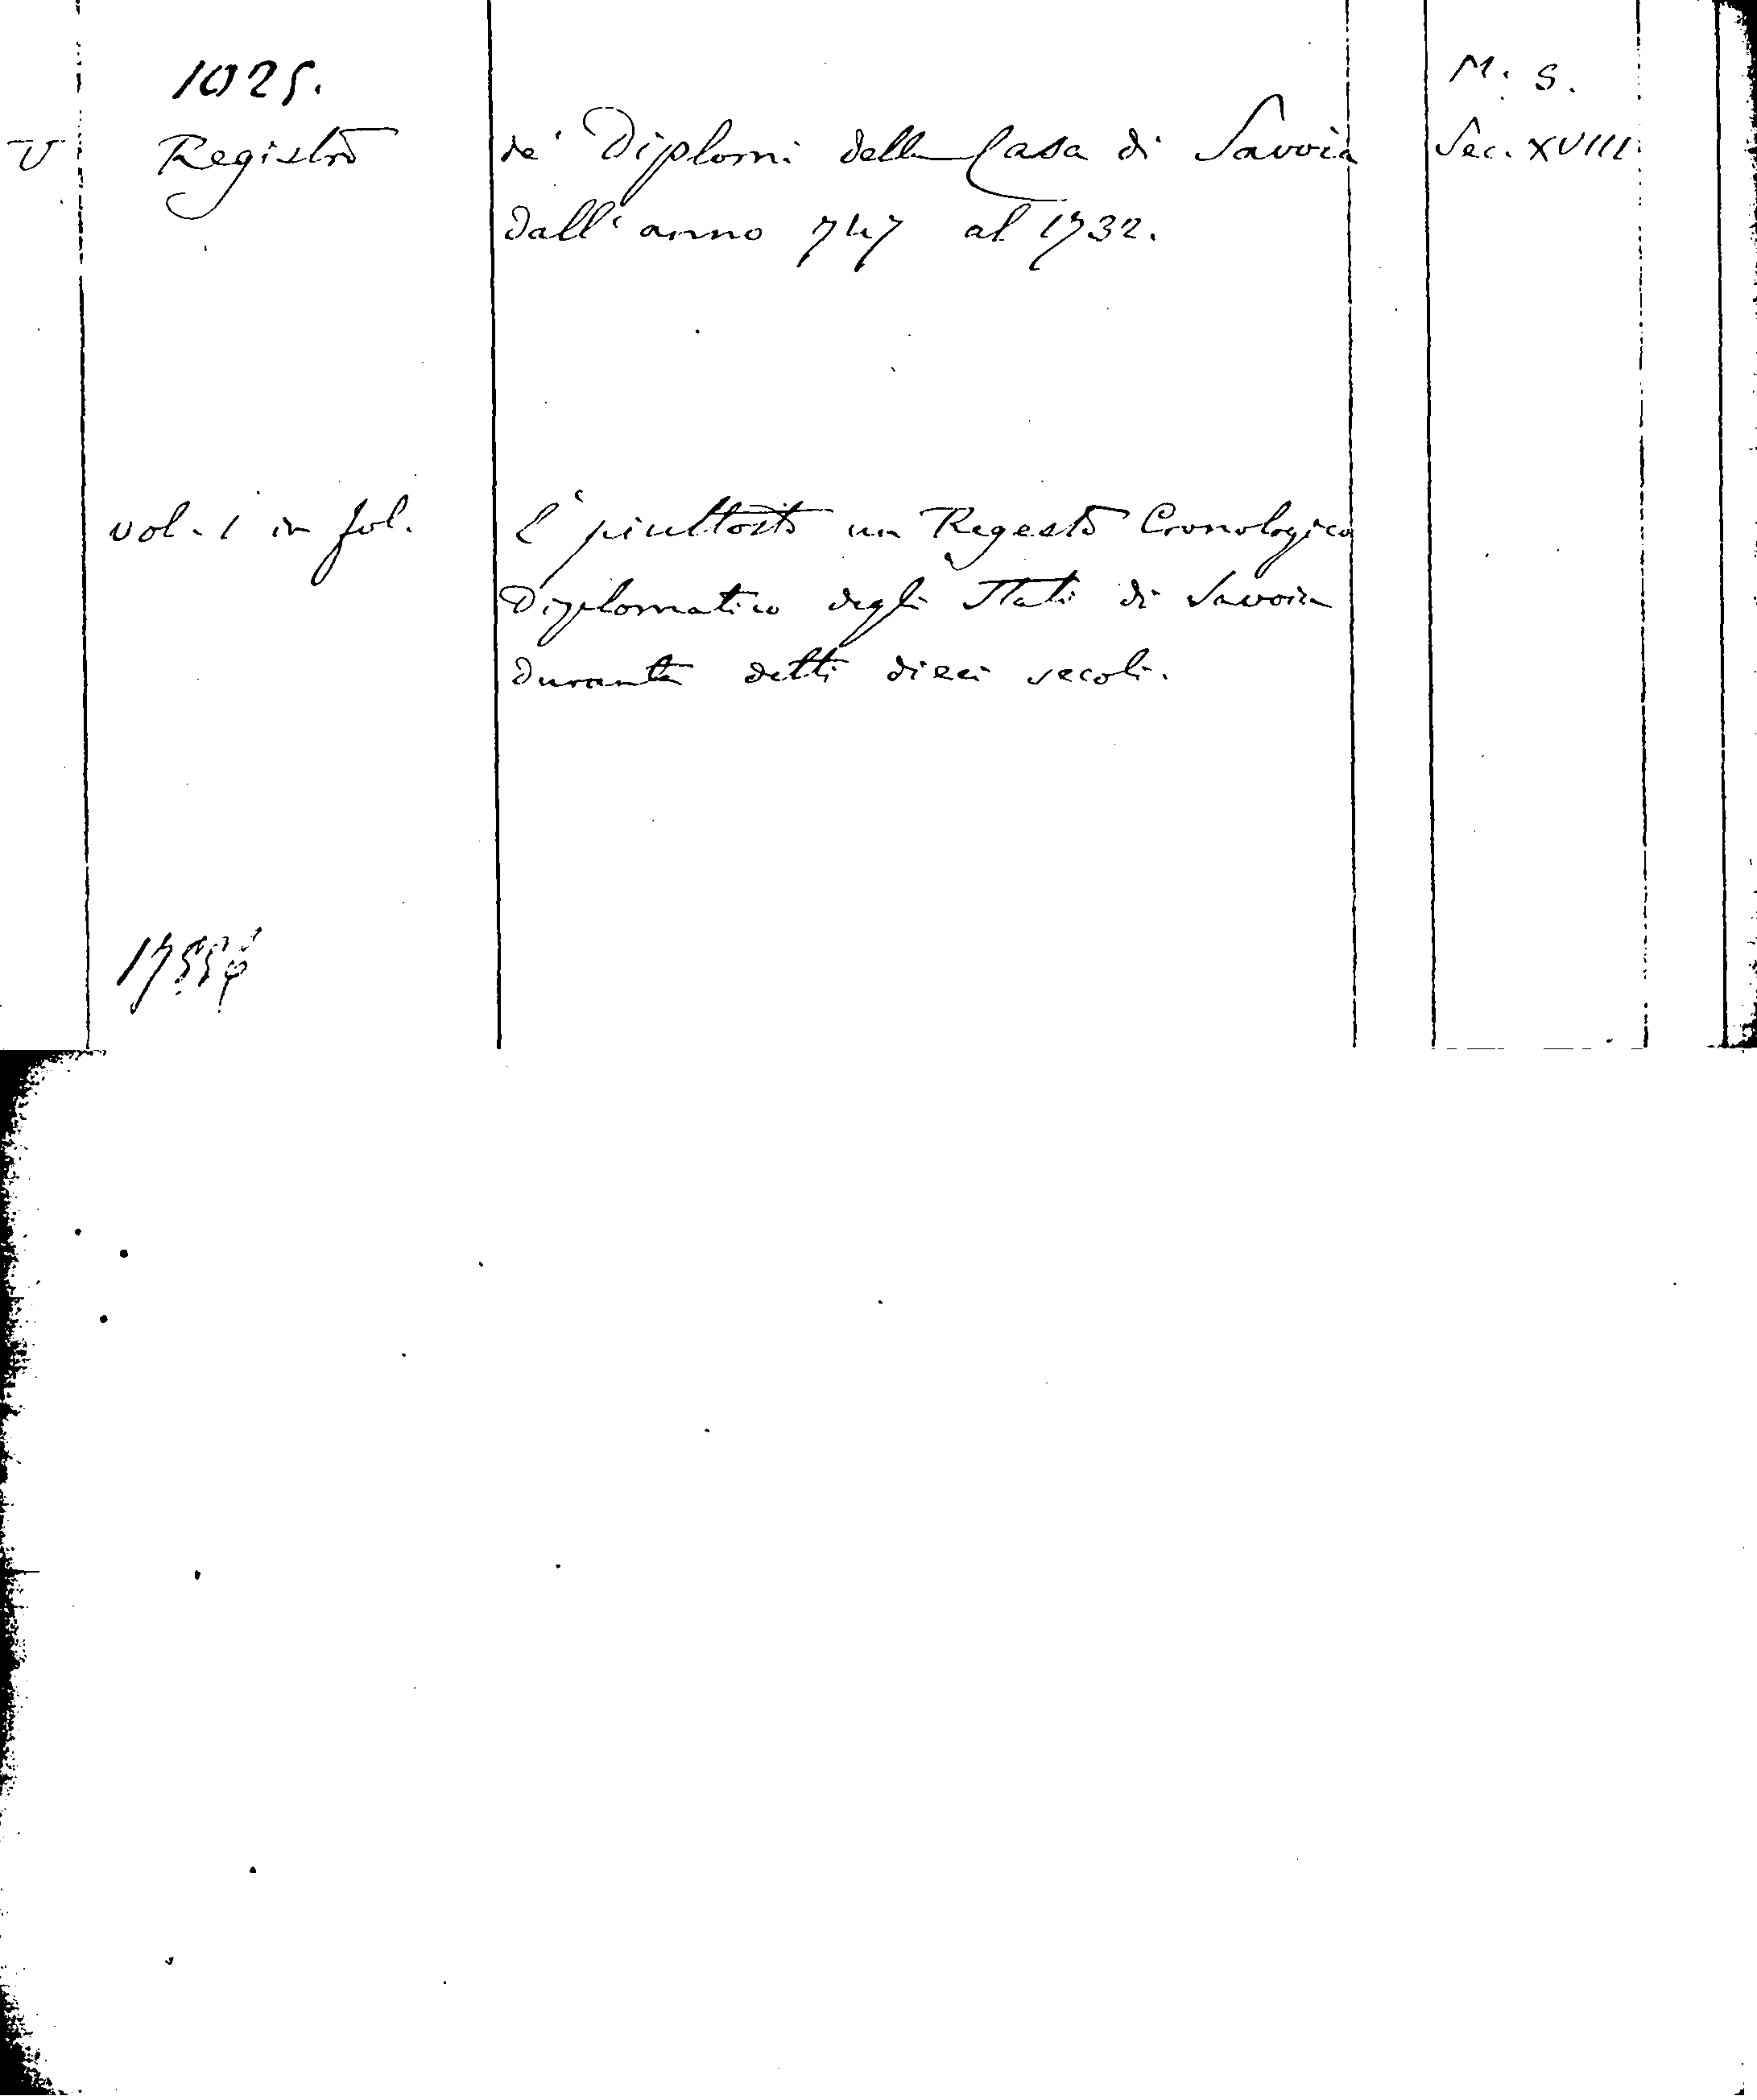 1025. M. S.
V Registro de' Diplomi della Casa di Savoia Sec. XVIII
dall' anno 747 al 1732.
vol. 1 in fol. È piuttosto un Regesto Cronologico
Diplomatico degli Stati di Savoia
durante detti dieci secoli.